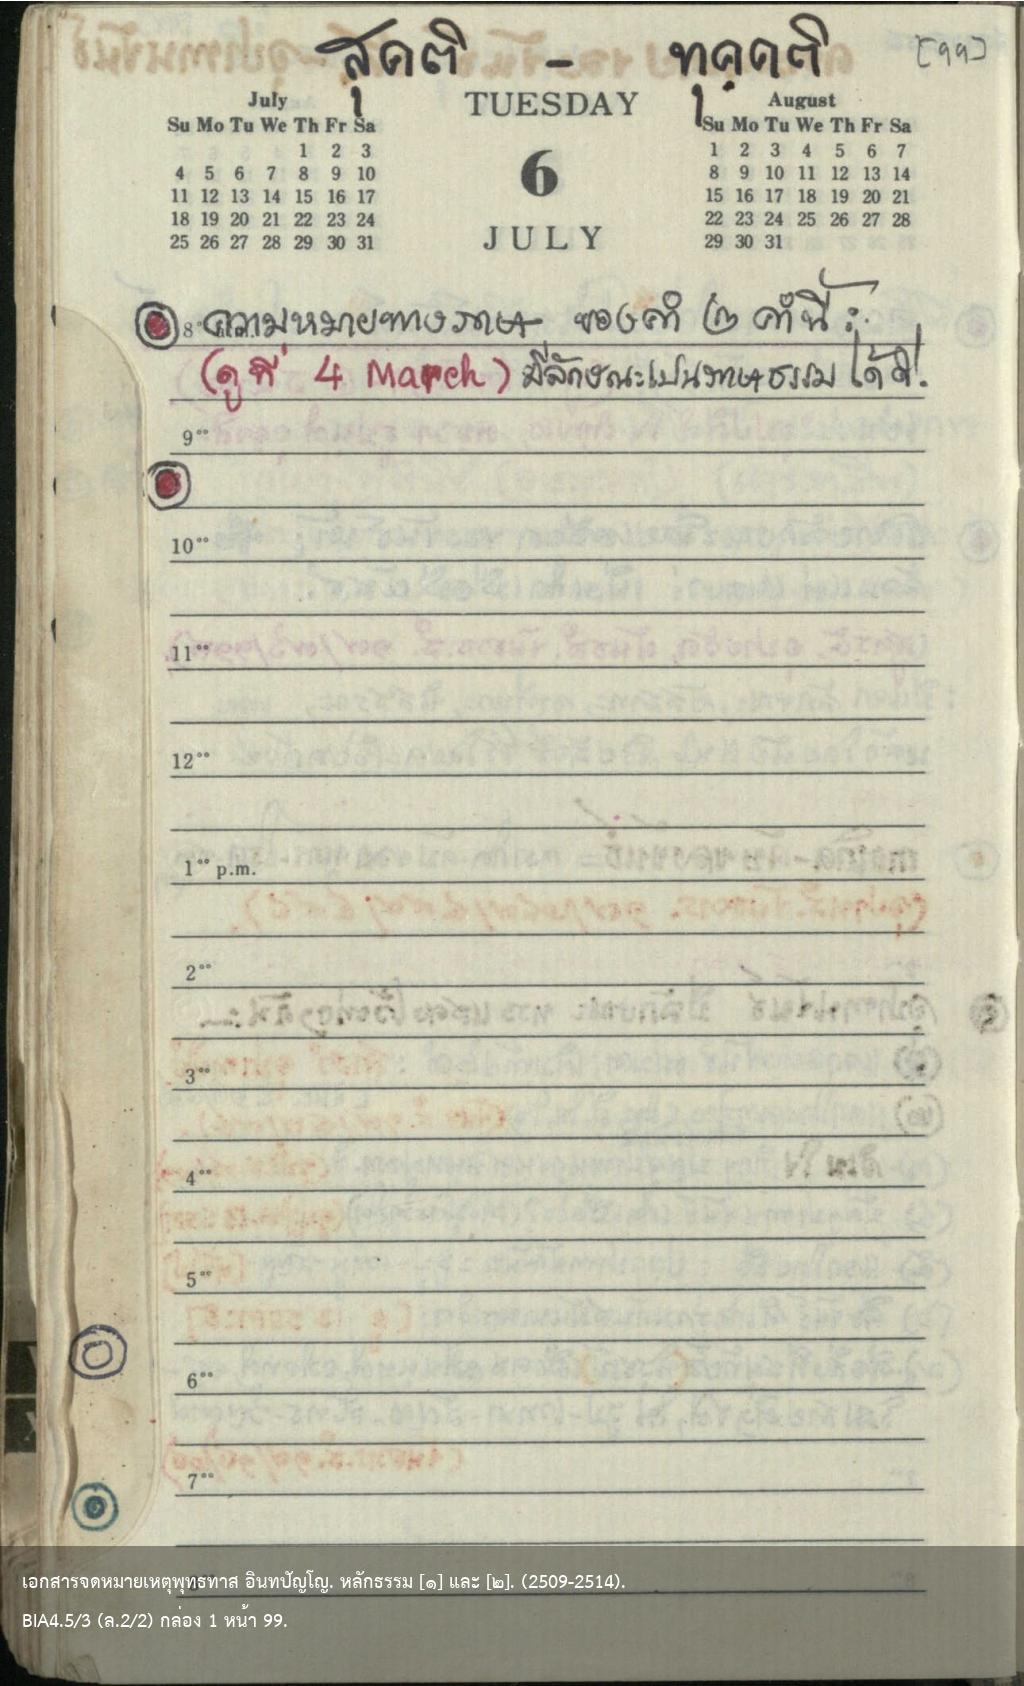 สุคติ – ทุคฺคติ [๙๙]
July TUESDAY August
Su Mo Tu We Th Fr Sa
1 2 3
4 5 6 7 8 9 10
11 12 13 14 15 16 17
18 19 20 21 22 23 24
25 26 27 28 29 30 31
6
JULY
Su Mo Tu We Th Fr Sa
1 2 3 4 5 6 7
8 9 10 11 12 13 14
15 16 17 18 19 20 21
22 23 24 25 26 27 28
29 30 31
8°° ความหมายทางภาษา ของคำ ๒ คำนี้ :
(ดูที่ 4 March) มีลักษณะเป็นภาษาธรรม ได้ดี.
9°°
10°°
11°°
12°°
1°° p.m.
2°°
3°°
4°°
5°°
6°°
7°°
เอกสารจดหมายเหตุพุทธทาส อินทปัญโญ. หลักธรรม [๑] และ [๒]. (2509-2514).
BIA4.5/3 (ล.2/2) กล่อง 1 หน้า 99.